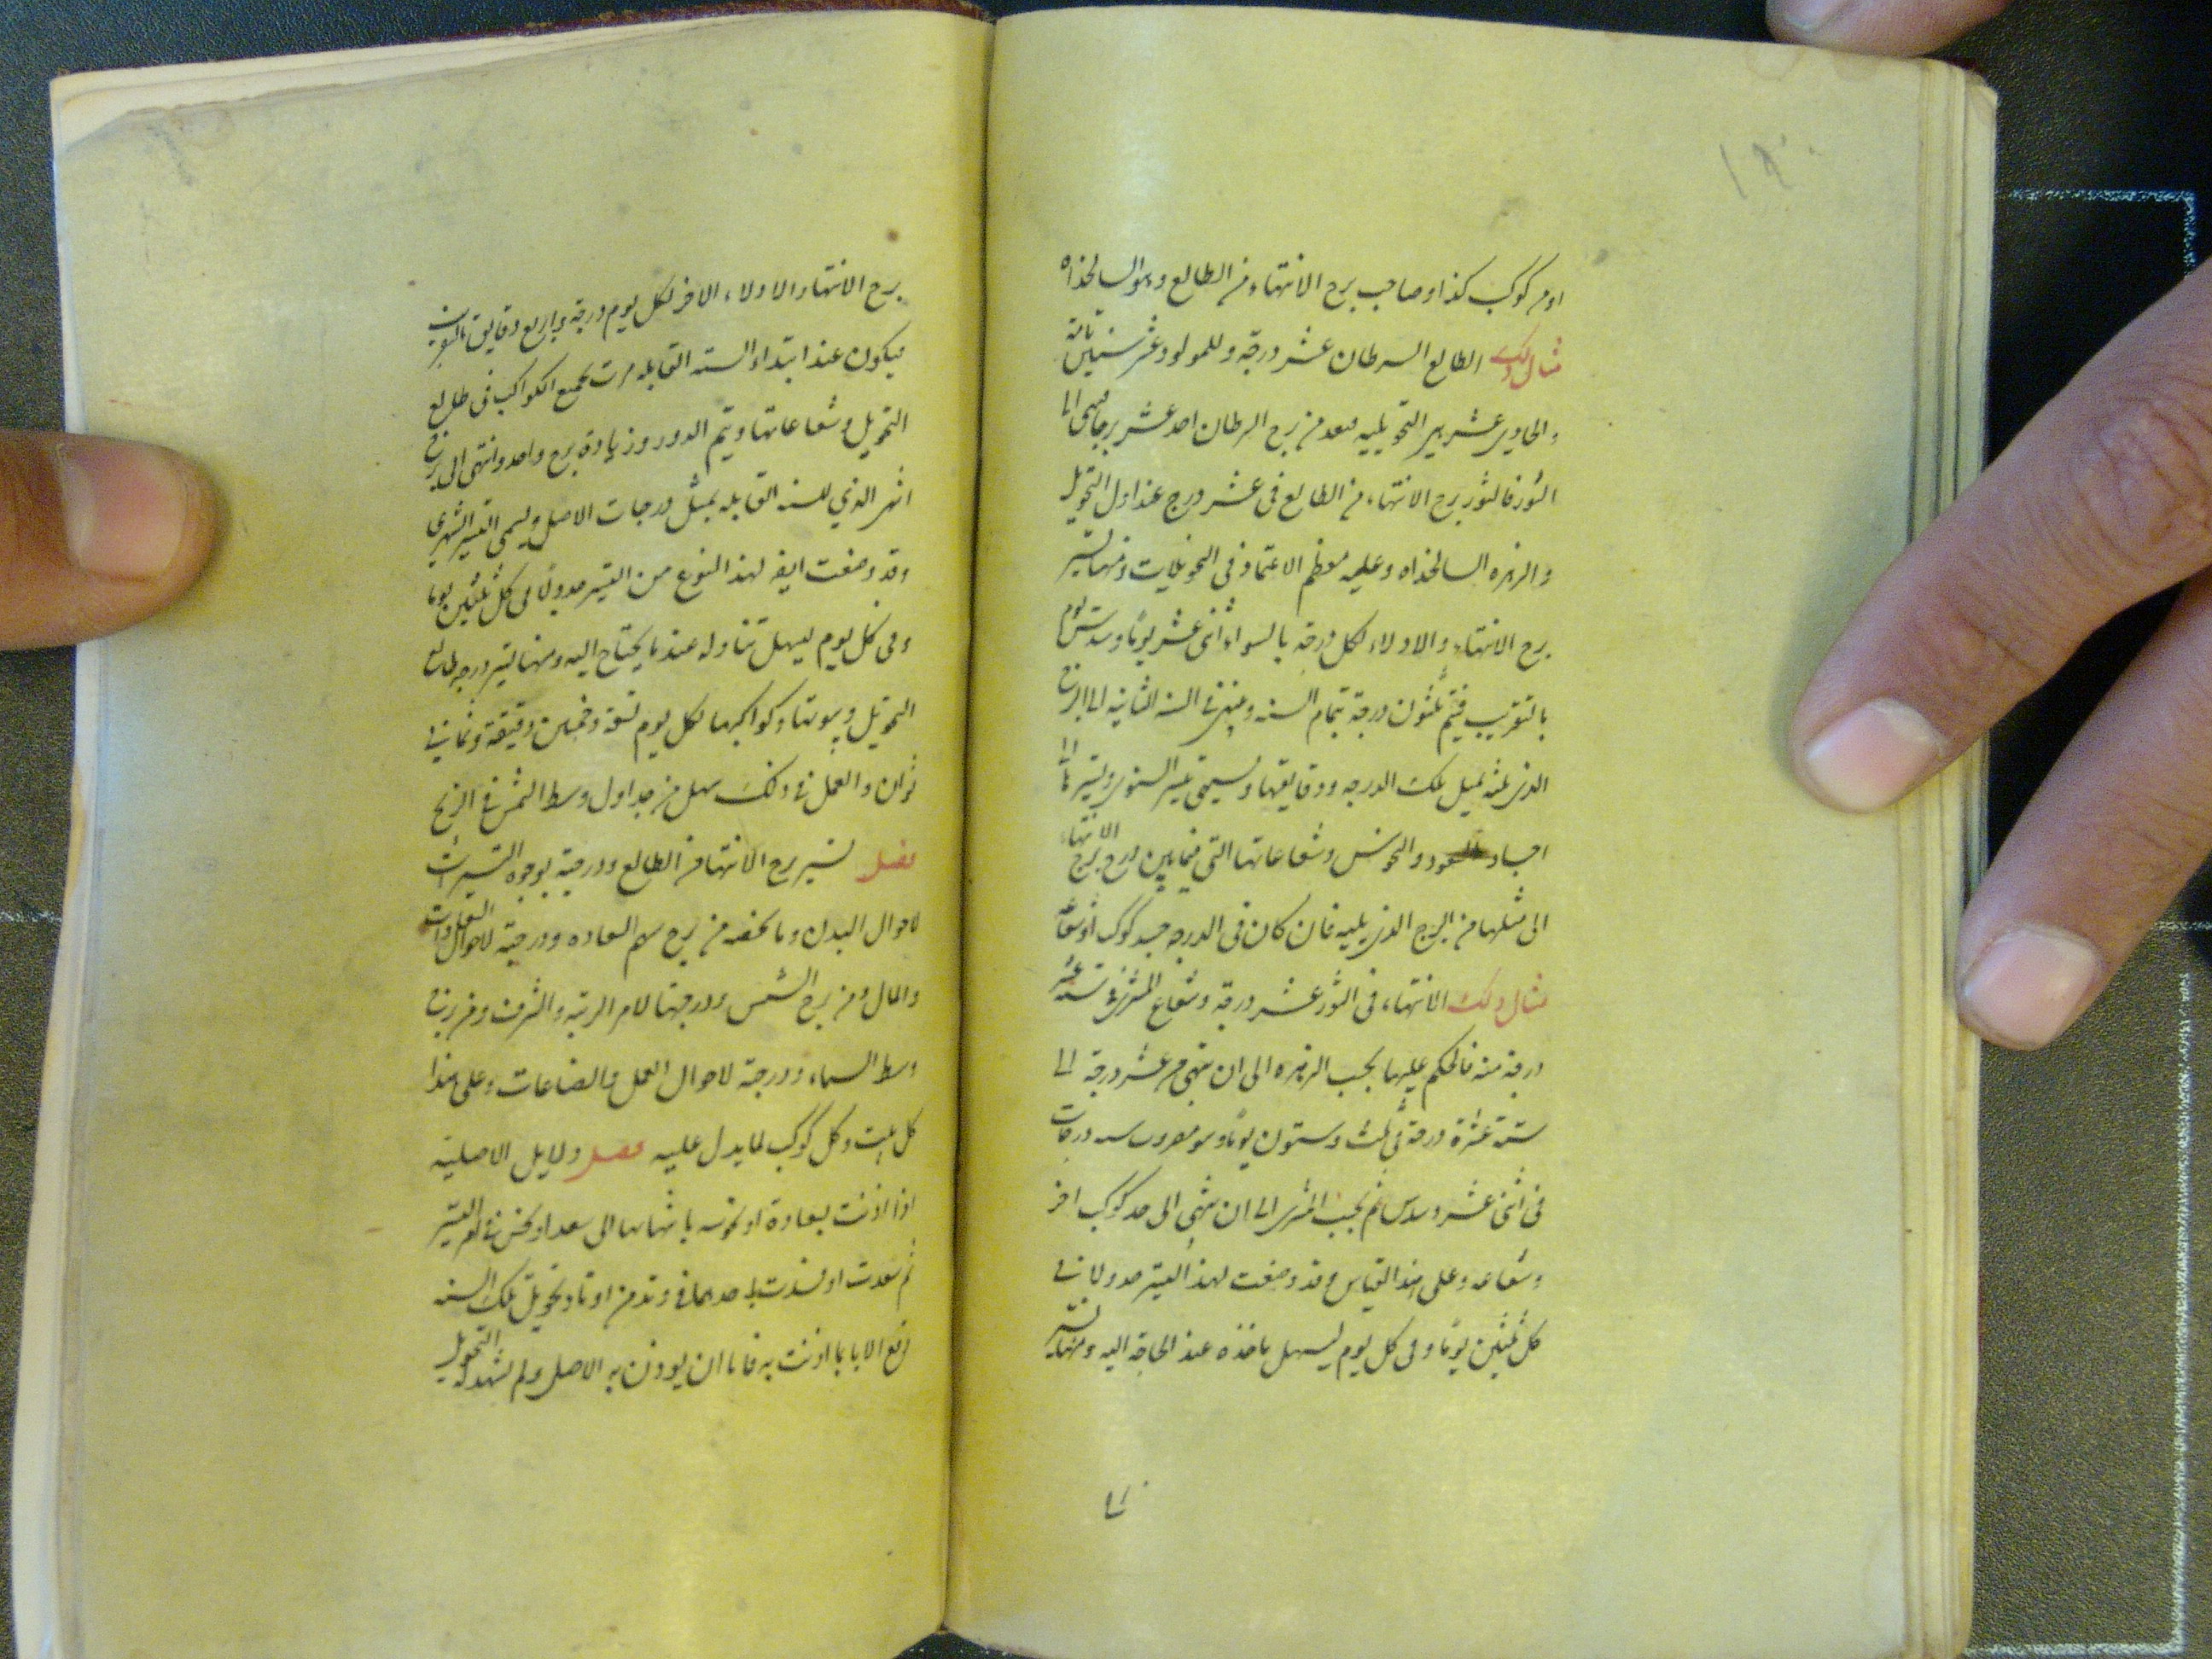 او من كوكب كذا وصاحب برج الانتهاء من الطالع وهو السالخداه
مثال ذلك الطالع السرطان عشر درجة وللمولود عشر سنين تامة
والحادي عشر التحويلية فعد من برج السرطان احد عشر برجا فينتهي الى
الثور فالثور برج الانتهاء من الطالع في عشر درج عند اول التحويل
والزهرة السالخداه وعليه معظم الاعتماد في التحويلات ومنها تسيير
برج الانتهاء والاولاء لكل درجة بالسواء اثنى عشر يوما وسدس يوم
بالتقريب فيتم ثلثون درجة بتمام السنه وينتهي في السنه الثانيه الى البرج
الذي يليه بمثل تلك الدرجه ودقايقها ويسمى تسيير السنوي وتسير الى
اجساد السعود والنحوس وشعاعاتها التي فيما بين درج برج الانتهاء
الى مثلها من البرج الذي يليه فان كان في الدرجه جسد كوكب او شعاعه
مثال ذلك الانتهاء في الثور عشر درجة وشعاع المشتري في ستة عشر
درجة منه فالحكم عليها بحسب الزهره الى ان ينتهي من عشر درجة الى
ستة عشرة درجة ثلث وستون يوما وهو مضروب ست درجات
في اثنى عشر وسدس ثم بحسب المشتري الى ان ينتهي الى حد كوكب اخر
وشعاعه وعلى هذا القياس وقد وضعت لهذا التسيير جدولا في
كل ثلثين يوما وفي كل يوم ليسهل ماخذه عند الحاجة اليه ومنها تسيير
برج الانتهاء والاولاء الاخر لكل يوم درجة واربع دقايق بالتقريب
فيكون عند ابتداء السنه القابله مرت بجميع الكواكب في طالع
التحويل وشعاعاتها ويتم الدور وزيادة برج واحد وانتهى الى برج
اخر الذي للسنه القابله بمثل درجات الاصل ويسمى التسيير الشهري
وقد وضعت ايضا لهذا النوع من التسيير جدولا في كل ثلثين يوما
وفي كل يوم ليسهل تناوله عند ما يحتاج اليه ومنها تسيير درجه طالع
التحويل وبيوتها وكواكبها لكل يوم تسعة وخمسين دقيقة وثماني
ثوان والعمل في ذلك سهل من جداول وسط الشمس في الزيج
فصل تسيير برج الانتهاء من الطالع ودرجته بوجوه التسييرات
لاحوال البدن وما يخصه من برج سهم السعاده ودرجته لاحوال السعادات
والمال ومن برج الشمس ودرجتها لامر الرتبه والشرف ومن برج
وسط السماء ودرجته لاحوال العمل والصناعات وعلى هذا
كل بيت وكل كوكب لما يدل عليه فصل دلايل الاصلية
اذا اذنت بسعادة او نحوسه بانتهائها الى سعد او نحس في التسيير
ثم سعدت او فسدت باحدهما في وتد من اوتاد تحويل تلك السنه
بما اذنت به فاما ان يوذن به الاصل ولم يشهد له التحويل